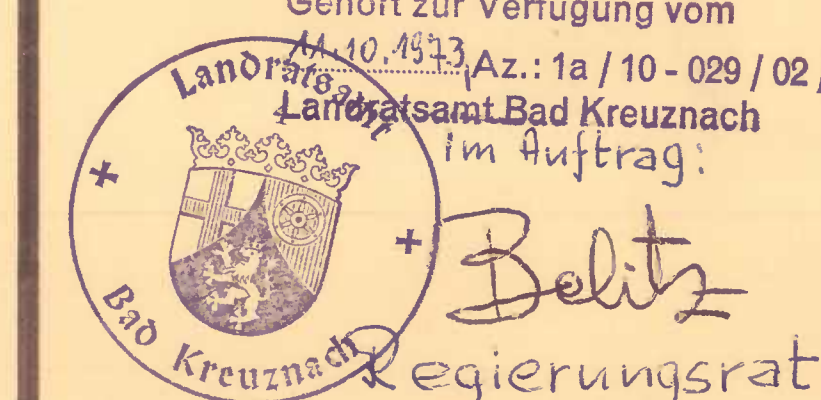 Gehört zur Verfügung vom
11.10.1973, Az.: 1a / 10 - 029 / 02 /
Landratsamt Bad Kreuznach
im Auftrag:
Belitz
Regierungsrat
Landratsamt
+ +
Bad Kreuznach